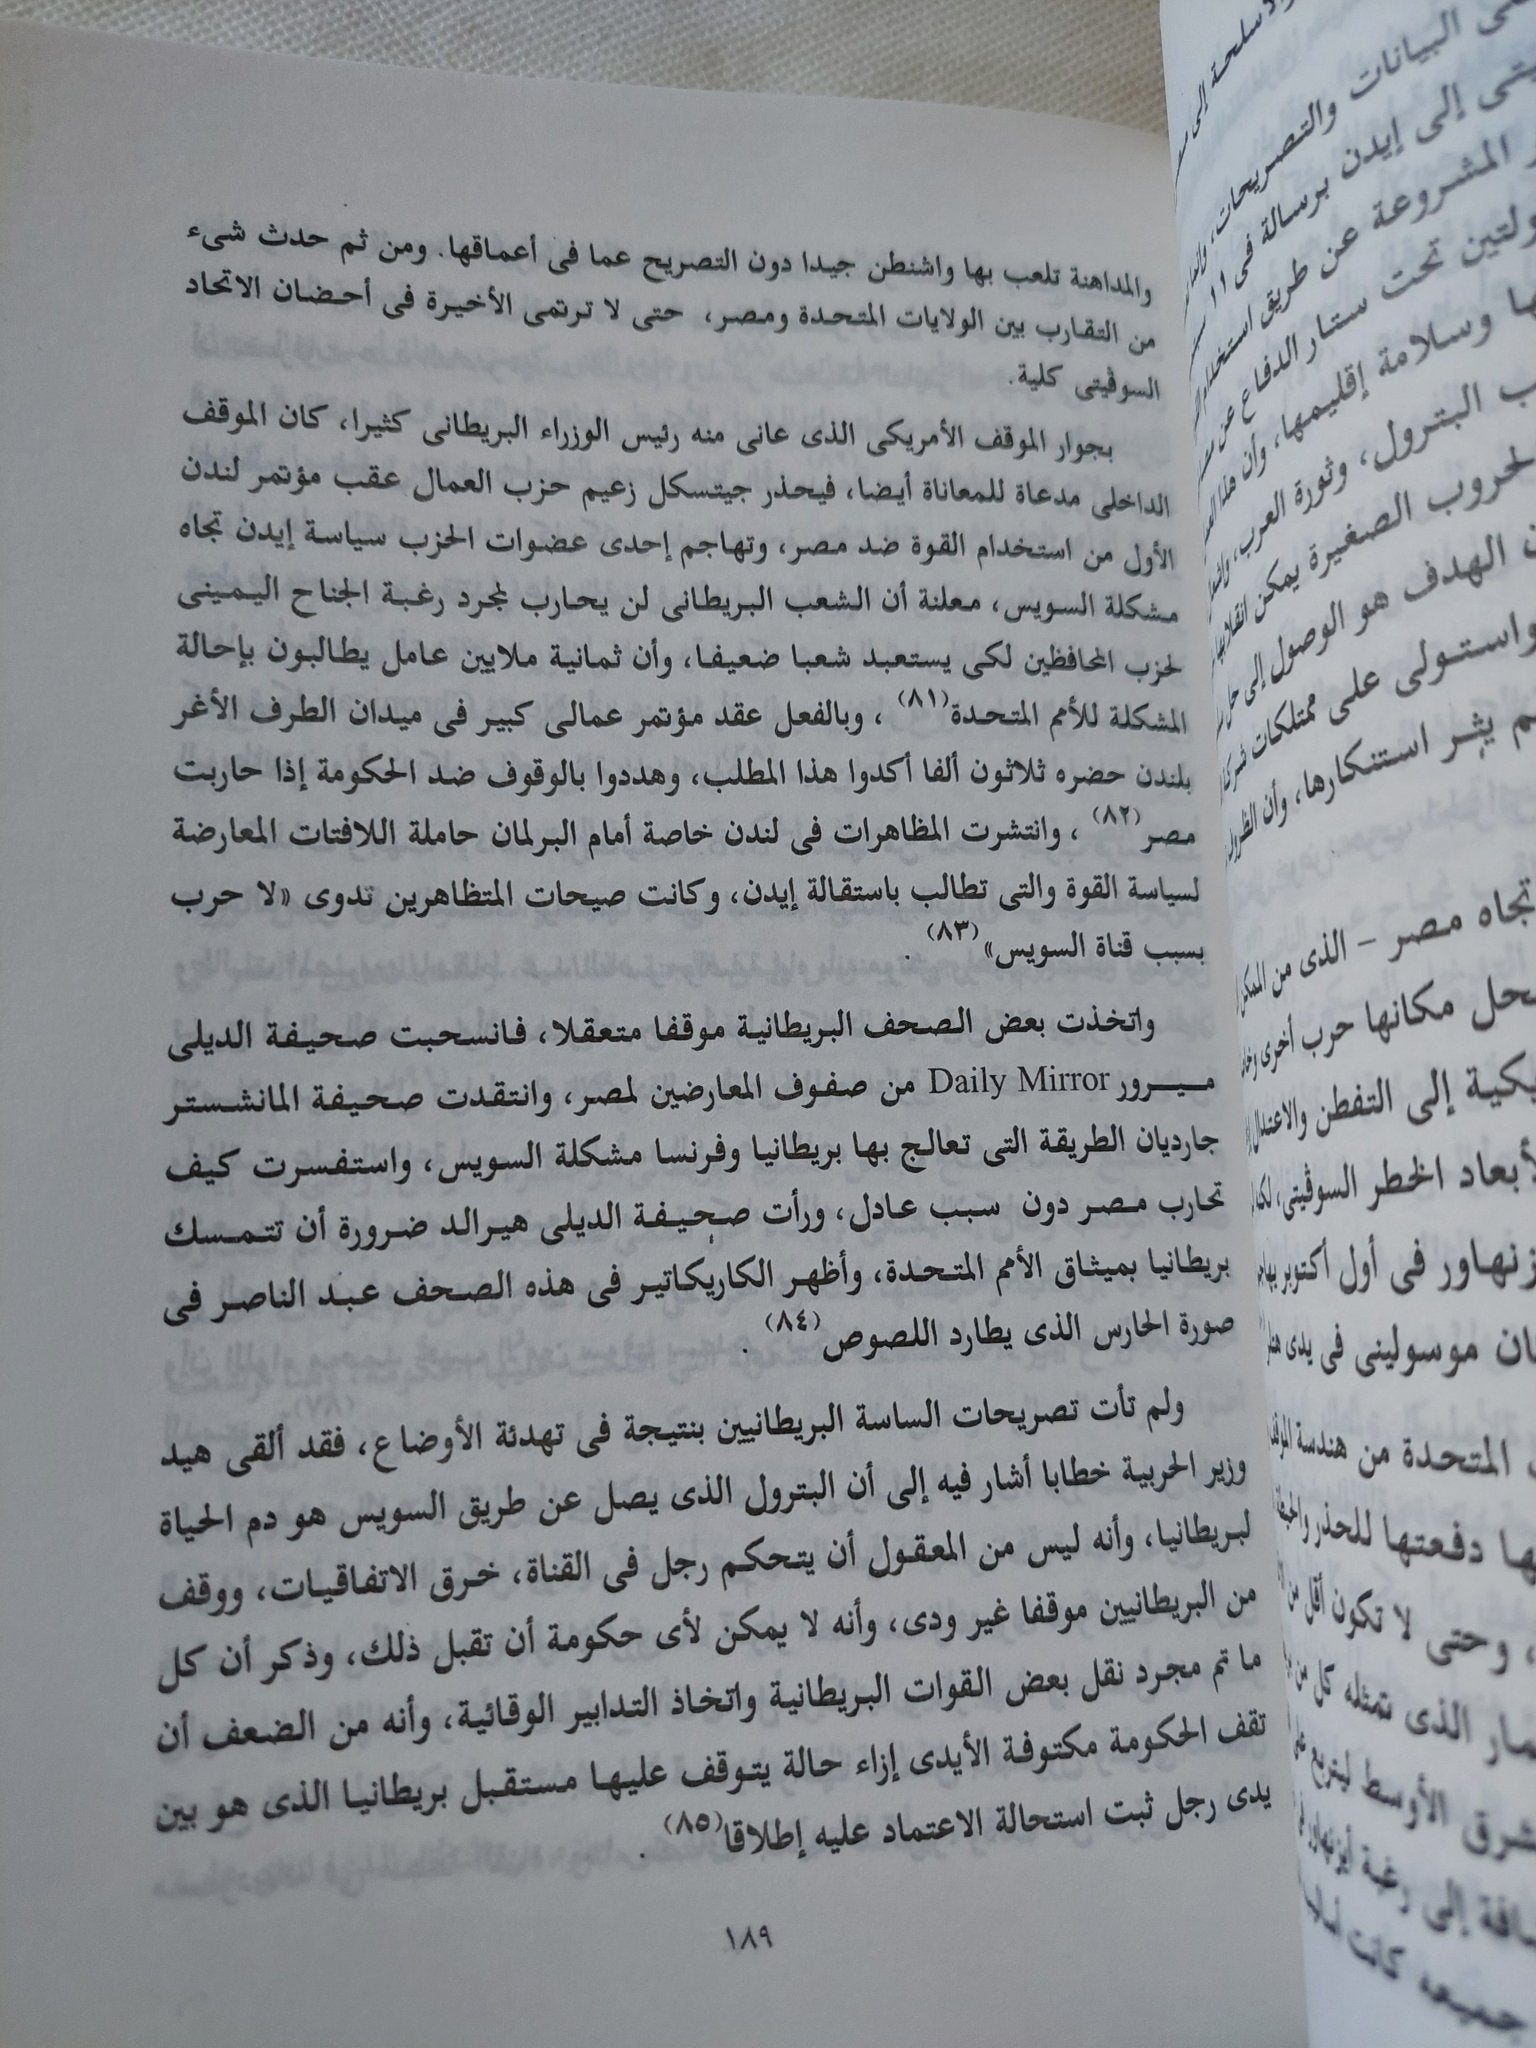 والمداهنة تلعب بها واشنطن جيدا دون التصريح عما فى أعماقها. ومن ثم حدث شىء
من التقارب بين الولايات المتحدة ومصر، حتى لا ترتمى الأخيرة فى أحضان الاتحاد
السوڤيتى كلية.
بجوار الموقف الأمريكى الذى عانى منه رئيس الوزراء البريطانى كثيرا، كان الموقف
الداخلى مدعاة للمعاناة أيضا، فيحذر جيتسكل زعيم حزب العمال عقب مؤتمر لندن
الأول من استخدام القوة ضد مصر، وتهاجم إحدى عضوات الحزب سياسة إيدن تجاه
مشكلة السويس، معلنة أن الشعب البريطانى لن يحارب لمجرد رغبة الجناح اليمينى
لحزب المحافظين لكى يستعبد شعبا ضعيفا، وأن ثمانية ملايين عامل يطالبون بإحالة
المشكلة للأمم المتحدة(٨١) ، وبالفعل عقد مؤتمر عمالى كبير فى ميدان الطرف الأغر
بلندن حضره ثلاثون ألفا أكدوا هذا المطلب، وهددوا بالوقوف ضد الحكومة إذا حاربت
مصر(٨٢) ، وانتشرت المظاهرات فى لندن خاصة أمام البرلمان حاملة اللافتات المعارضة
لسياسة القوة والتى تطالب باستقالة إيدن، وكانت صيحات المتظاهرين تدوى «لا حرب
بسبب قناة السويس»(٨٣) .
واتخذت بعض الصحف البريطانية موقفا متعقلا، فانسحبت صحيفة الديلى
ميرور Daily Mirror من صفوف المعارضين لمصر، وانتقدت صحيفة المانشستر
جارديان الطريقة التى تعالج بها بريطانيا وفرنسا مشكلة السويس، واستفسرت كيف
تحارب مصر دون سبب عادل، ورأت صحيفة الديلى هيرالد ضرورة أن تتمسك
بريطانيا بميثاق الأمم المتحدة، وأظهر الكاريكاتير فى هذه الصحف عبد الناصر فى
صورة الحارس الذى يطارد اللصوص (٨٤) .
ولم تأت تصريحات الساسة البريطانيين بنتيجة فى تهدئة الأوضاع، فقد ألقى هيد
وزير الحربية خطابا أشار فيه إلى أن البترول الذى يصل عن طريق السويس هو دم الحياة
لبريطانيا، وأنه ليس من المعقول أن يتحكم رجل فى القناة، خرق الاتفاقيات، ووقف
من البريطانيين موقفا غير ودى، وأنه لا يمكن لأى حكومة أن تقبل ذلك، وذكر أن كل
ما تم مجرد نقل بعض القوات البريطانية واتخاذ التدابير الوقائية، وأنه من الضعف أن
تقف الحكومة مكتوفة الأيدى إزاء حالة يتوقف عليها مستقبل بريطانيا الذى هو بين
يدى رجل ثبت استحالة الاعتماد عليه إطلاقا(٨٥) .
١٨٩
البيانات والتصريحات،
إلى إيدن برسالة فى ١١
المشروعة عن طريق استخدام
تحت ستار الدفاع عن
وسلامة إقليمها، وأن هذا
البترول، وثورة العرب،
الحروب الصغيرة يمكن
الهدف هو الوصول إلى حل
واستولى على ممتلكات شركة
يثر استنكارها، وأن
تجاه مصر - الذى من الممكن
مكانها حرب أخرى
إلى التفطن والاعتدال
لأبعاد الخطر السوڤيتى،
فى أول أكتوبر
موسولينى فى يدى
المتحدة من هندسة
دفعتها للحذر
وحتى لا تكون أقل من
الذى تمثله كل من
الأوسط ليتربع على
إلى رغبة أيزنهاور
كانت